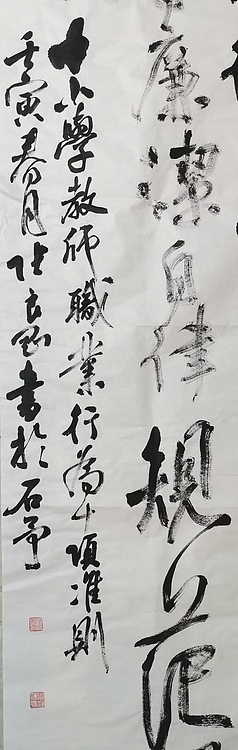 廉潔自律規範
中小學教師職業行為十項准則
壬寅春月書於石